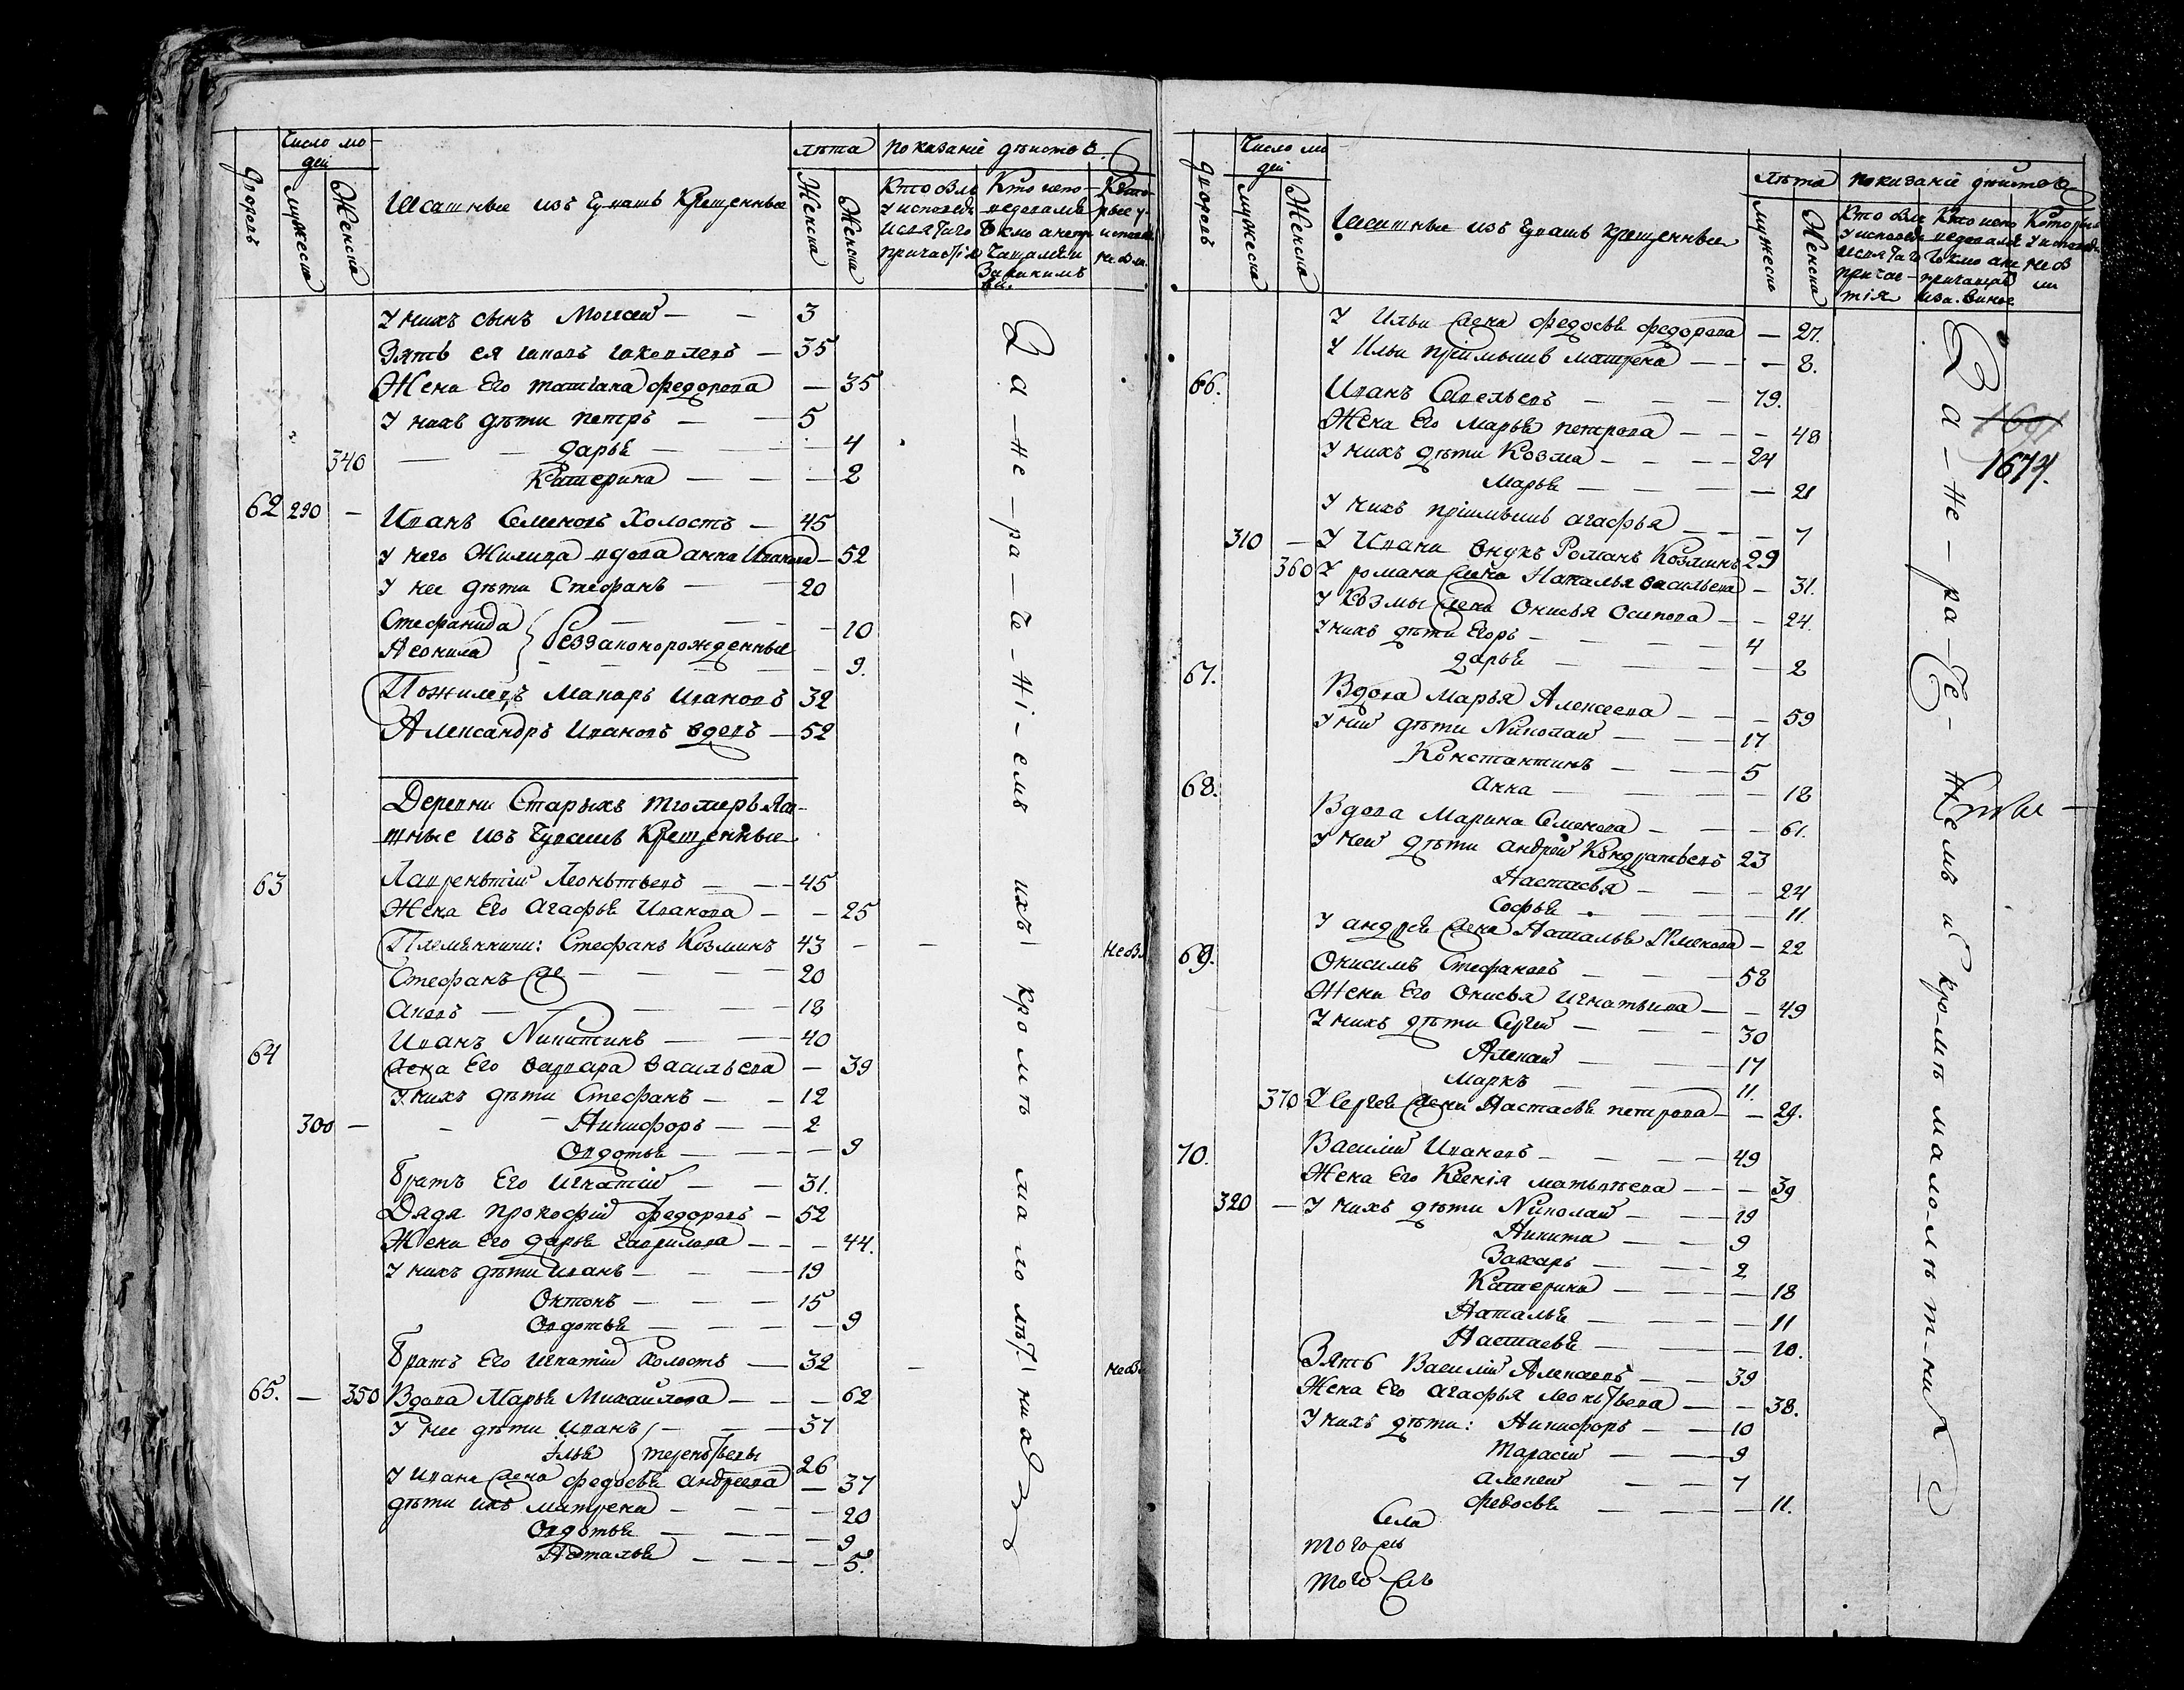 Число лю
дей
лѣта показаніе дѣистов.
дворовъ
мужеска
Женска
Ясашные изъ Чувашъ Крещенные
Женска
Женска
Кто были
У исповеди
исвятаго
причастія
Кто испо
ведовался
токмо а непр
Кото
рые у
исповеди
не были
У нихъ сынъ Моисей — — 3
Зять ея Иванъ — 35
Жена Его татіана федорова — 35
У нихъ дѣти петръ — — 5
дарья — 4
340 Катерина — — — 2
62 290 — Иванъ Семеновъ Холостъ — 45
У него Жилица вдова анна Иванова — 52
У нее дѣти Стефанъ — — 20
Стефанида — — — 10
Неонила } беззаконорожденные — 9.
Пожилецъ Макаръ Ивановъ 32
Александръ Ивановъ вдовъ — 52
Деревни Старыхъ тюмеръ Яса-
шные изъ Чувашъ Крещенные
63 Лаврентій Леонтьевъ — — 45
Жена Его Агафья Иванова — — 25
Племянники: Стефанъ Козминъ 43 — — Небы
Стефанъ же — — — 20
18
64 Иванъ Никитинъ — — 40
жена Его варвара васильева — 39
У нихъ дѣти Стефанъ — — 12
300 — — — Никифоръ — — 2
Овдотья — — — 9
братъ Его игнатій — — 31.
Дядя прокофій федоровъ — 52
Жена Его дарья гаврилова — — — 44.
У нихъ дѣти иванъ — — — 19
Октонъ — — — 15
Овдотья — — — — 9
братъ Его игнатій холостъ — 32 — Небы
65. — 350 Вдова Марья Михайлова — — — 62
У нее дѣти иванъ — — — 37
илья } терентьевы 26
У ивана жена федосья андреева — 37
дѣти ихъ матрена — — 20
Овдотья — — — 9
Наталья — — — — 5.
За-не-ра-че-ні-емъ ихъ кромѣ малолѣт.
Число лю
дей
дворовъ
мужеска
Женска
Ясашные изъ Чувашъ крещенные
лѣта
показаніе дѣистов
мужеска
Женска
Кто были
У исповеди
исвятаго
причас-
тія
Кто испо
ведовался
токмо а не
причащал
Которые
У исповеди
не бы
ли
У Ильи жена федосья федорова — 27.
У Ильи пріимышъ матрена — — — 8.
66. Иванъ Савельевъ — — — 79.
Жена Его Марья петрова — — — 48
У нихъ дѣти Козма — — — 24
Марья — — — — 21
У нихъ пріимышъ агафья — — — 7
310 — У Ивана внукъ Романъ Козминъ 29
360 У романа жена Наталья васильева — 31.
У Козмы жена Онисья Осипова — — 24.
У нихъ дѣти Егоръ — — — 4
дарья — — — — 2
67. Вдова Марья Алексеева — — — 59
У ней дѣти Николай — — — 17
Константинъ — — — 5
Анна — — — 18
68. Вдова Марина Семенова — — — 61.
У ней дѣти андрей Кондратьевъ 23
Настасья — — — 24
Софья — — — 11
У андрея жена Наталья Семенова — 22
69. Онисимъ Стефановъ — — — 58
Жена Его Онисья Игнатьева — — 49
У нихъ дѣти Сергей — — — 30
Алексей — — — 17
Маркъ — — — 11.
370 У Сергея жена Настасья петрова — — 29.
70. Василий Ивановъ — — — 49
Жена Его Ксенія матвѣева — — — 39
320 — У нихъ дѣти Николай — — — 19
Никита — — — 9
Захаръ — — — 2
Катерина — — — 18
Наталья — — — — 11
Настасья — — — 10.
Зять Василий Алексеевъ — — 39
Жена Его агафья леонтьева — — 38.
У нихъ дѣти: Никифоръ — — 10
Тарасій — — 9
алексей — — 7
Федосья — — — 11.
Села
того
того
За-не-ра-че-ніемъ и кромѣ малолѣт-ни
1674.